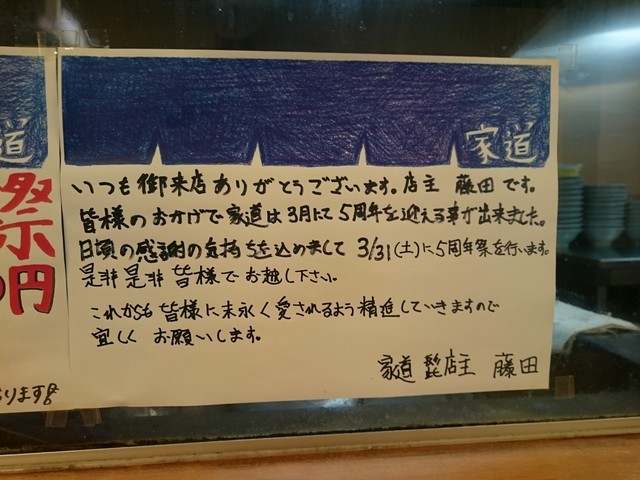 家道
いつも御来店ありがとうございます。店主 藤田です。
皆様のおかげで家道は3月にて5周年を迎える事が出来ました。
日頃の感謝の気持ちを込めまして 3/31(土)に5周年祭を行います。
是非是非皆様でお越し下さい。
これからも皆様に末永く愛されるよう精進していきますので
宜しく お願いします。
家道 髭店主 藤田
道
祭
円
ります